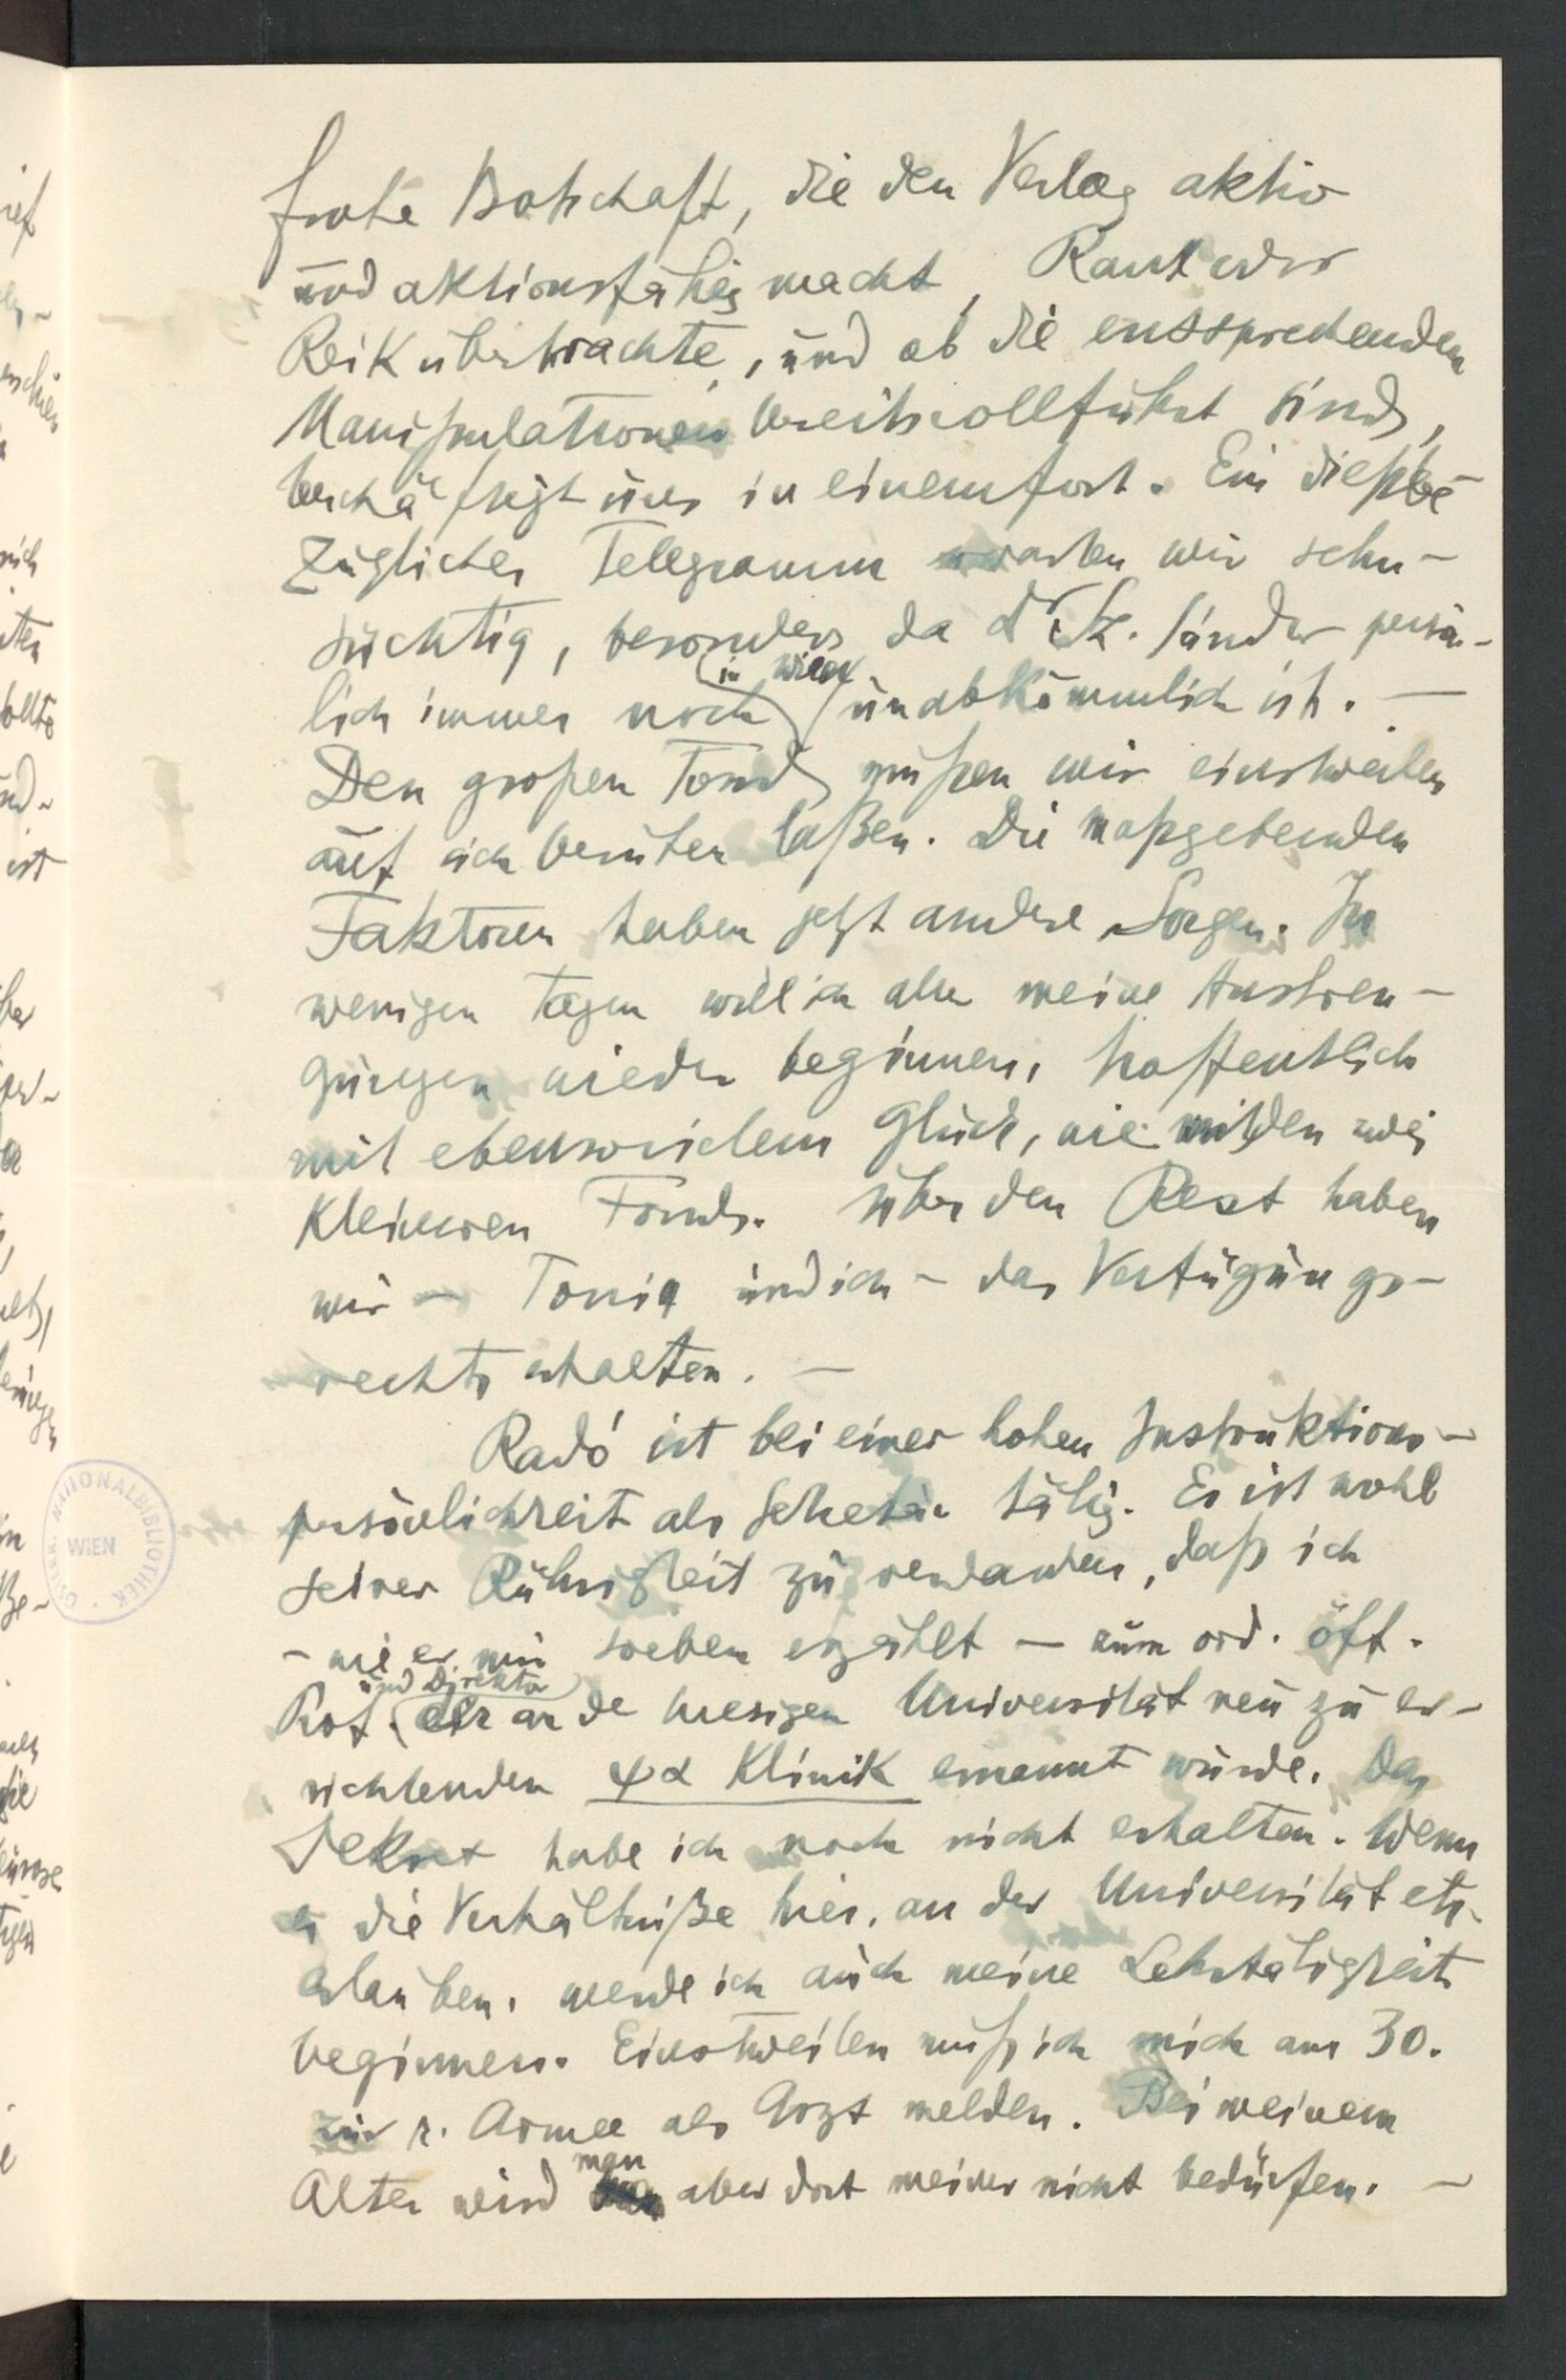 frohe Botschaft, die den Verlag aktiv
und aktionsfähig macht, Rank oder
Reik überbrachte, und ob die entsprechenden
Manipulationen bereits vollführt sind,
beschäftigt uns in einemfort. Ein dießbe-
zügliches Telegramm erwarten wir sehn-
süchtig, besonders da Dr Sz. länder persön-
lich immer noch in Wien unabkömmlich ist. —
Den großen Fond müßen wir einstweilen
auf sich beruhen laßen. Die maßgebenden
Faktoren haben jetzt andere Sorgen. In
wenigen Tagen will ich aber meine Anstren-
gungen wieder beginnen, hoffentlich
mit ebensovielem Glück, wie mit den zwei
kleineren Fonds. Über den Rest haben
wir — Toni u ich — das Verfügungs-
recht erhalten. —
Radó ist bei einer hohen Instruktions-
persönlichkeit als Sekretär tätig. Es ist wohl
seiner Rührigkeit zu verdanken, daß ich
- wie er mir soeben erzählt — zum ord. öff.
Prof. und Direktor der an der hiesigen Universität neu zu er-
richtenden ψα Klinik ernannt wurde. Das
Dekret habe ich noch nicht erhalten. Wenn
es die Verhältniße hier, an der Universität etc.
erlauben, werde ich auch meine Lehrtätigkeit
beginnen. Einstweilen muß ich mich am 30.
zur r. Armee als Arzt melden. Bei meinem
Alter wird man aber dort meiner nicht bedürfen. —
ÖSTERR. NATIONALBIBLIOTHEK · WIEN